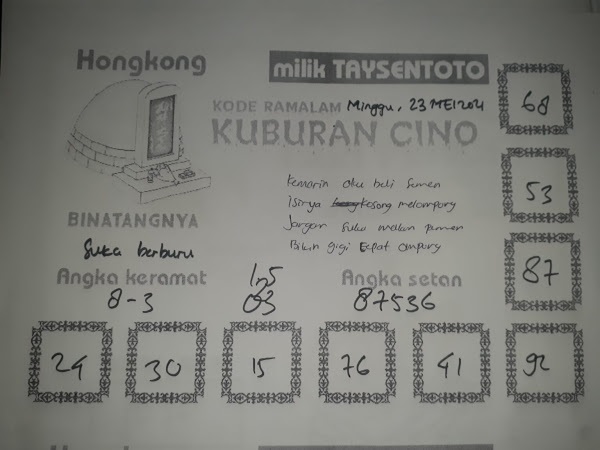 Hongkong
milik TAYSENTOTO
KODE RAMALAM Minggu, 23 MEI 2021
KUBURAN CINO
68
Kemarin aku beli semen
Isinya kosong melompong
Jangan suka makan permen
Bikin gigi cepat ompong
53
BINATANGNYA
Suka berburu
87
Angka keramat
8-3
03
Angka setan
87536
24
30
15
76
41
92